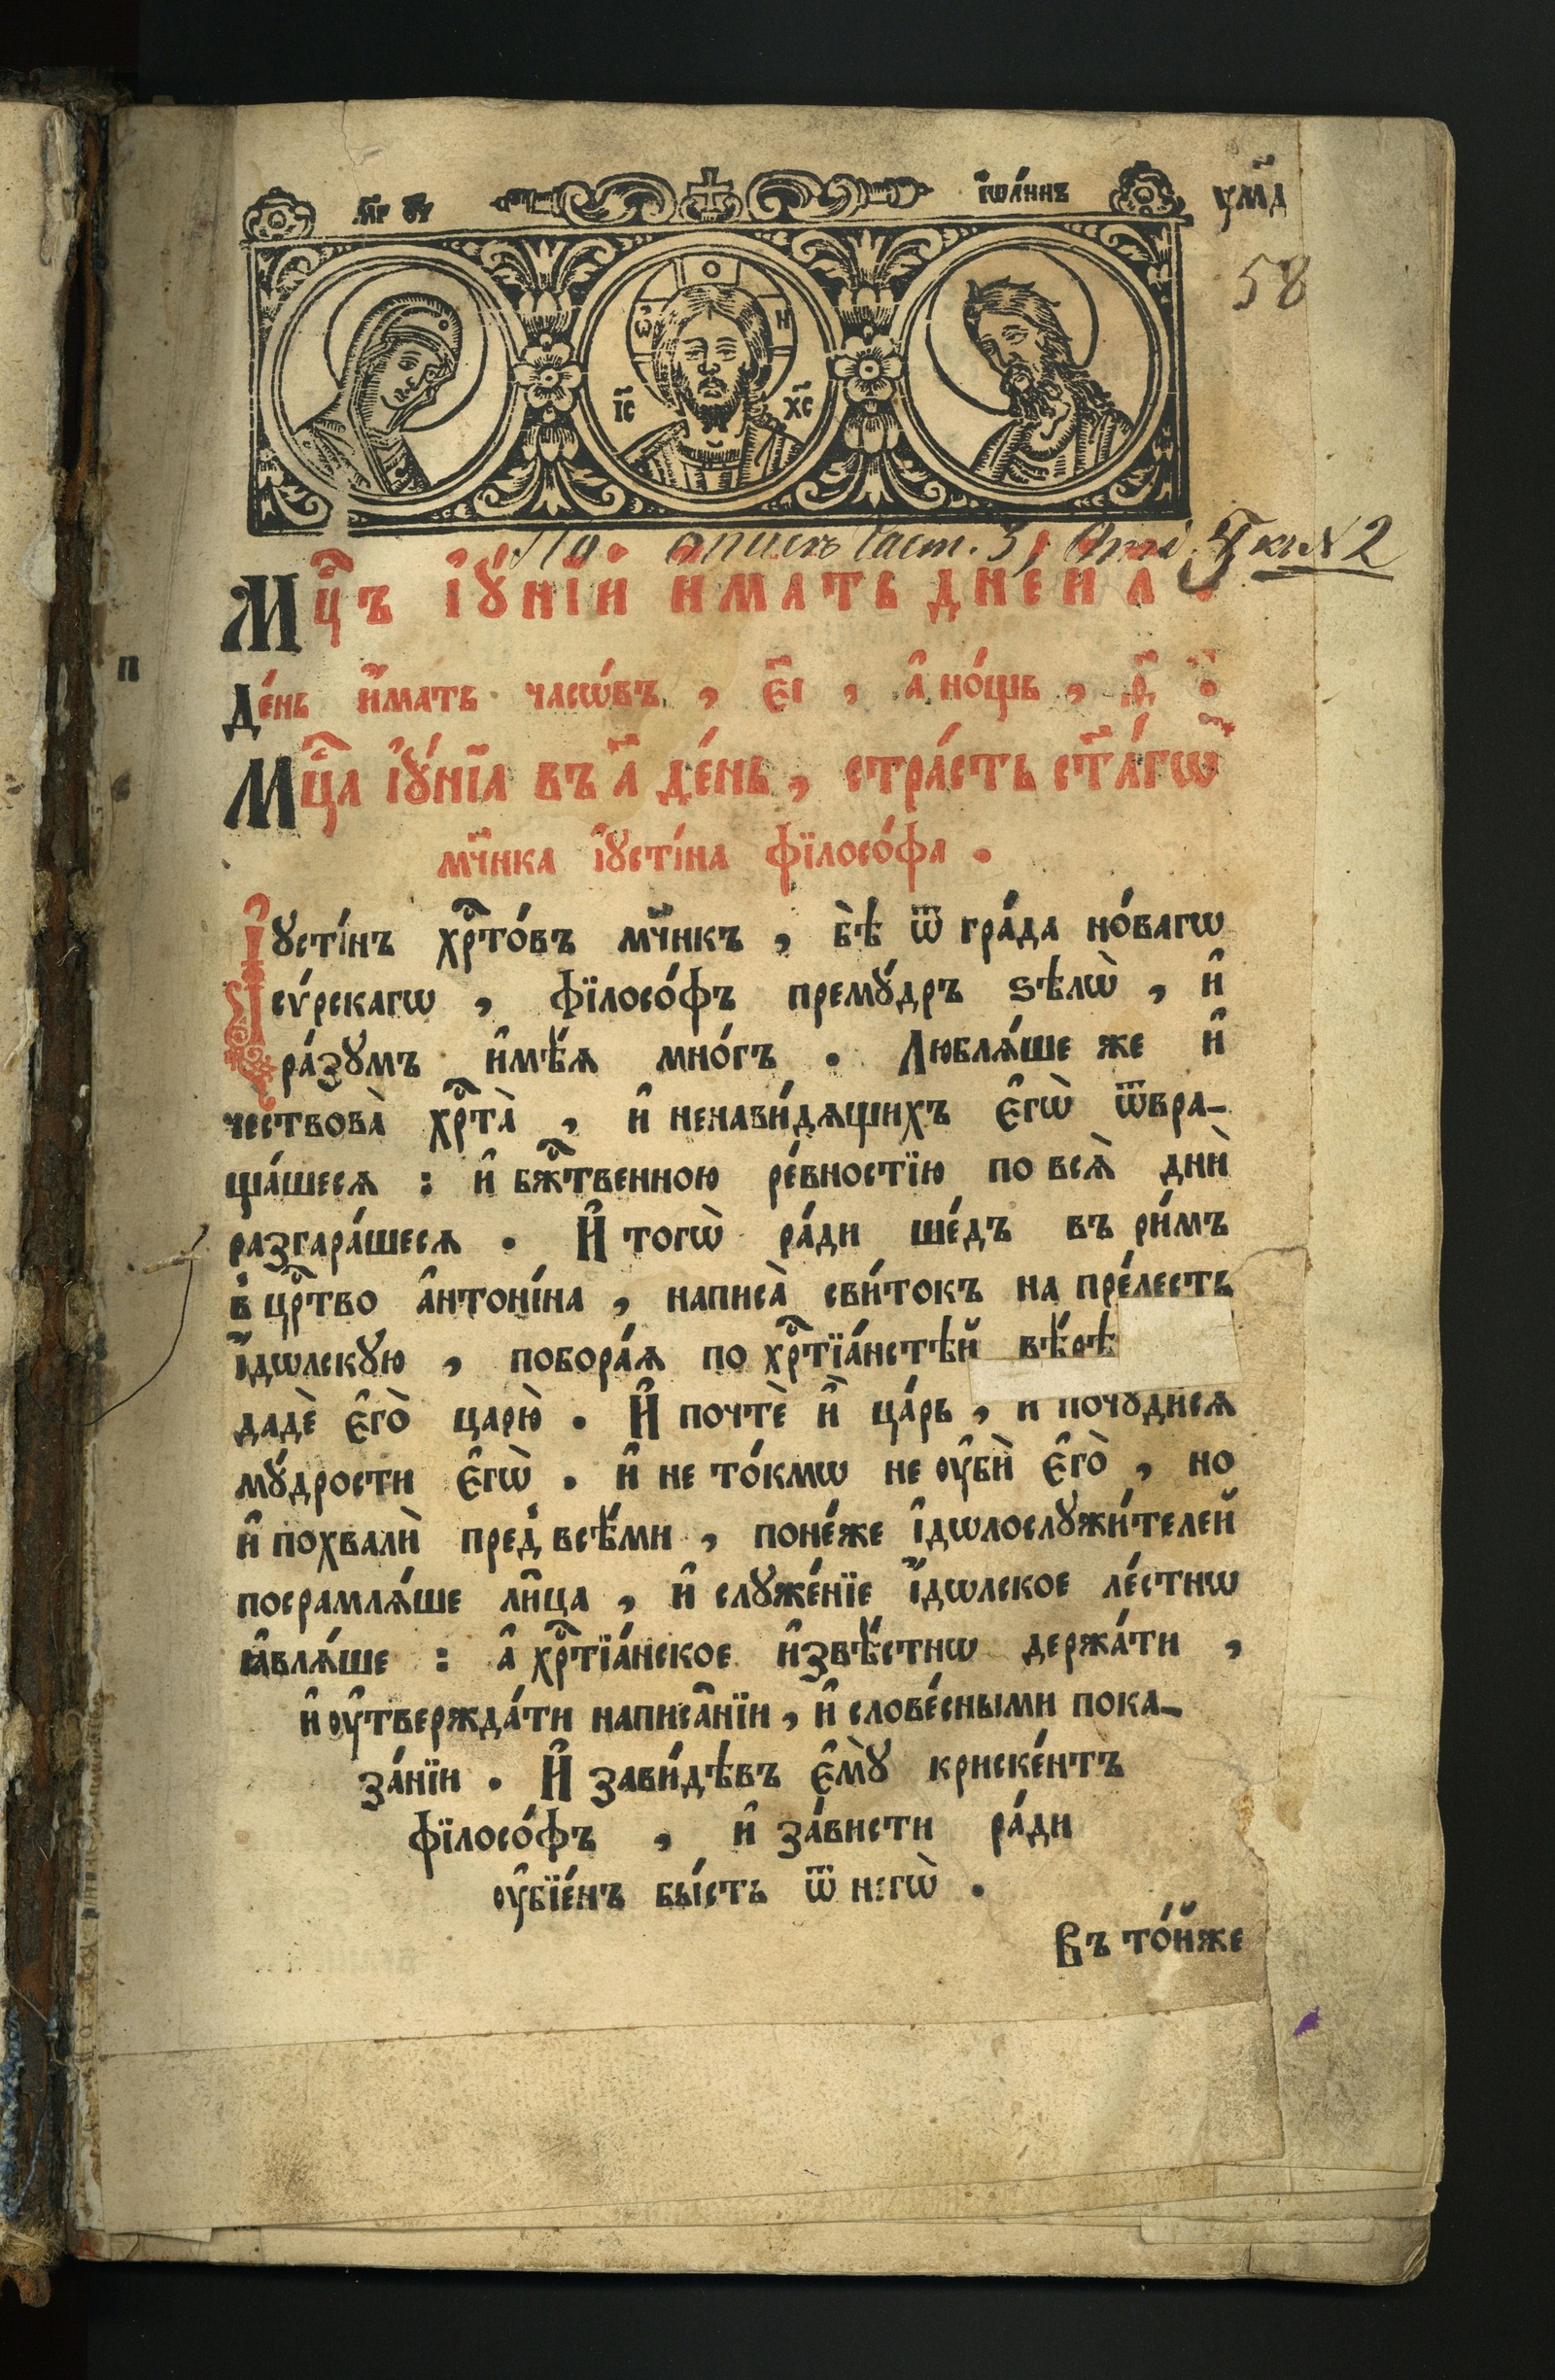 м҃р ѳ҃у   і҆ѡа́ннъ   ѱм҃д
58
ѽ о н
і҃с х҃с
По описи Част. 3,
Мц҃ъ і҆ꙋ́нїй и҆́мать дне́й л҃ .
п
де́нь и҆́мать часѡ́въ , є҃і , а҆ но́щь , ѳ҃ :
Мц҃а і҆ꙋ́нїа въ а҃ де́нь , стра́сть ст҃а́гѡ
мч҃нка і҆ꙋсті́на фїлосо́фа .
І҆ꙋсті́нъ хрⷭ҇то́въ мч҃нкъ , бѣ̀ ѿ гра́да но́вагѡ
сѵ́рскагѡ , фїлосо́фъ премꙋ́дръ ѕѣлѡ̀ , и҆
ра́зꙋмъ и҆мѣ́ѧ мно́гъ . Люблѧ́ше же и҆
чествова̀ хрⷭ҇та̀ , и҆ ненави́дѧщихъ є҆гѡ̀ ѿвра-
ща́шесѧ : и҆ бжⷭ҇твенною ре́вностїю по всѧ̀ дни̑
разгара́шесѧ . И҆ тогѡ̀ ра́ди ше́дъ въ ри́мъ
в̾ црⷭ҇тво а҆нтоні́на , написа̀ сви́токъ на пре́лесть
і҆́дѡлскꙋю , побора́ѧ по хрⷭ҇тїа́нстѣй вѣ́рѣ
дадѐ є҆го̀ царю̀ . И҆ почтѐ и҆̀ ца́рь , и почꙋдисѧ
мꙋ́дрости є҆гѡ̀ . и҆ не то́кмѡ не ᲂу҆би̑ є҆го̀ , но
и҆ похвали̑ пред̾ всѣ́ми , поне́же і҆дѡлослꙋжи́телей
посрамлѧ́ше ли́ца , и҆ слꙋже́нїе і҆́дѡлское ле́стнѡ
ꙗ҆влѧ́ше : а҆ хрⷭ҇тїа́нское и҆звѣ́стнѡ держа́ти ,
и҆ ᲂу҆твержда́ти написа́нїи , и҆ слове́сными пока-
за́нїи . И҆ зави́дѣвъ є҆мꙋ̀ криске́нтъ
фїлосо́фъ , и҆ за́висти ра́ди
ᲂу҆бїе́нъ бы́сть ѿ негѡ̀ .
Въ то́йже